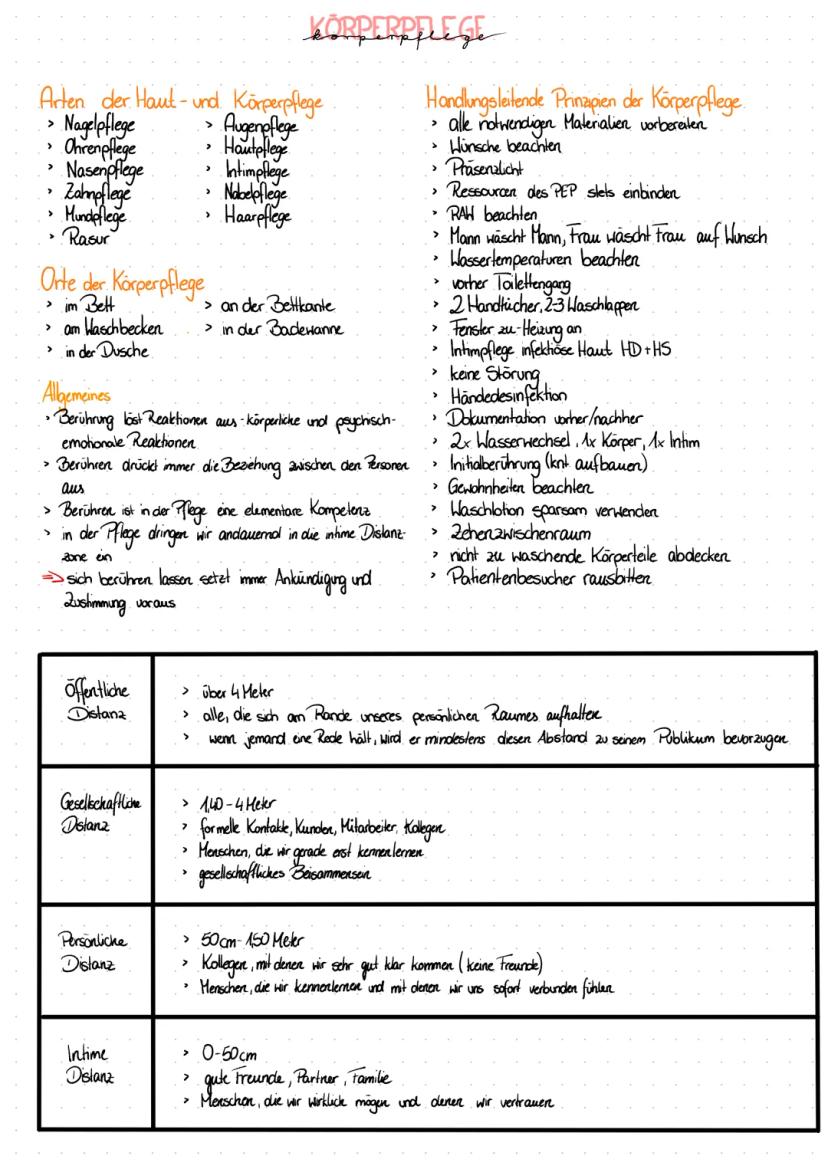 KÖRPERPFLEGE
körperpflege
Arten der Haut- und Körperpflege
> Nagelpflege
> Ohrenpflege
> Nasenpflege
> Zahnpflege
> Mundpflege
> Rasur
> Augenpflege
> Hautpflege
> Intimpflege
> Nabelpflege
> Haarpflege
Orte der Körperpflege
> im Bett
> am Waschbecken
> in der Dusche
> an der Bettkante
> in der Badewanne
Allgemeines
> Berührung löst Reaktionen aus - körperliche und psychisch-
emotionale Reaktionen
> Berühren drückt immer die Beziehung zwischen den Personen
aus
> Berühren ist in der Pflege eine elementare Kompetenz
> in der Pflege dringen wir andauernd in die intime Distanz-
zone ein
=> sich berühren lassen setzt immer Ankündigung und
Zustimmung voraus
Handlungsleitende Prinzipien der Körperpflege
> alle notwendigen Materialien vorbereiten
> Wünsche beachten
> Präsenzlicht
> Ressourcen des PEP stets einbinden
> RAW beachten
> Mann wäscht Mann, Frau wäscht Frau auf Wunsch
> Wassertemperaturen beachten
> vorher Toilettengang
> 2 Handtücher, 2-3 Waschlappen
> Fenster zu - Heizung an
> Intimpflege infektiöse Haut HD + HS
> keine Störung
> Händedesinfektion
> Dokumentation vorher/nachher
> 2x Wasserwechsel, 1x Körper, 1x Intim
> Initialberührung (knt aufbauen)
> Gewohnheiten beachten
> Waschlotion sparsam verwenden
> Zehenzwischenraum
> nicht zu waschende Körperteile abdecken
> Patientenbesucher rausbitten
Öffentliche
Distanz
> über 4 Meter
> alle, die sich am Rande unseres persönlichen Raumes aufhalten
> wenn jemand eine Rede hält, wird er mindestens diesen Abstand zu seinem Publikum bevorzugen
Gesellschaftliche
Distanz
> 1,40 - 4 Meter
> formelle Kontakte, Kunden, Mitarbeiter, Kollegen
> Menschen, die wir gerade erst kennenlernen
> gesellschaftliches Beisammensein
Persönliche
Distanz
> 50cm - 1,50 Meter
> Kollegen, mit denen wir sehr gut klar kommen (keine Freunde)
> Menschen, die wir kennenlernen und mit denen wir uns sofort verbunden fühlen
Intime
Distanz
> 0-50cm
> gute Freunde, Partner, Familie
> Menschen, die wir wirklich mögen und denen wir vertrauen